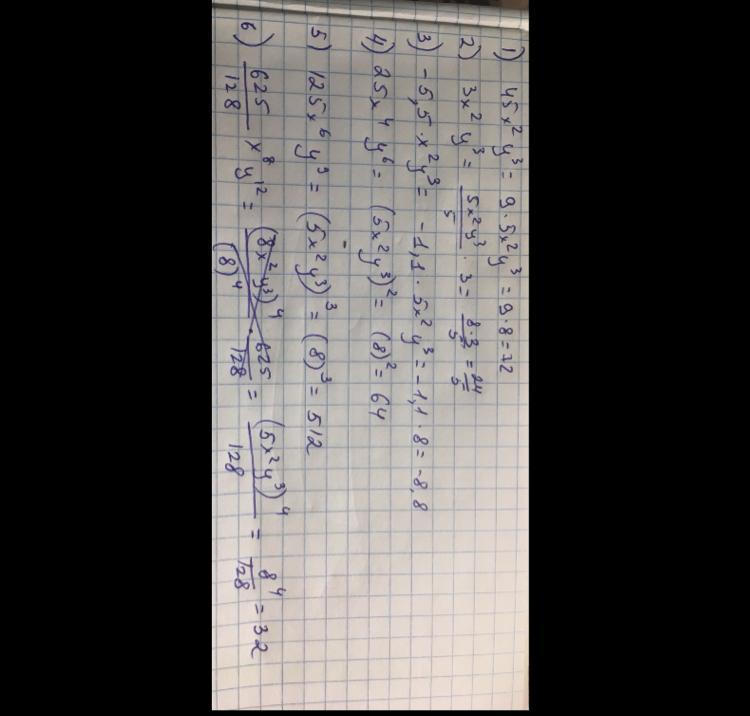 1) 45x² y³ = 9·5x² y³ = 9·8 = 72
2) 3x² y³ = 5x²y³/5 · 3 = 8·3/5 = 24/5
3) -5,5·x² y³ = -1,1·5x² y³ = -1,1·8 = -8,8
4) 25x⁴ y⁶ = (5x² y³)² = (8)² = 64
5) 125x⁶ y⁹ = (5x² y³)³ = (8)³ = 512
6) 625/128 x⁸ y¹² = (8x² y³)⁴/(8)⁴ · 625/128 = (5x² y³)⁴/128 = 8⁴/128 = 32